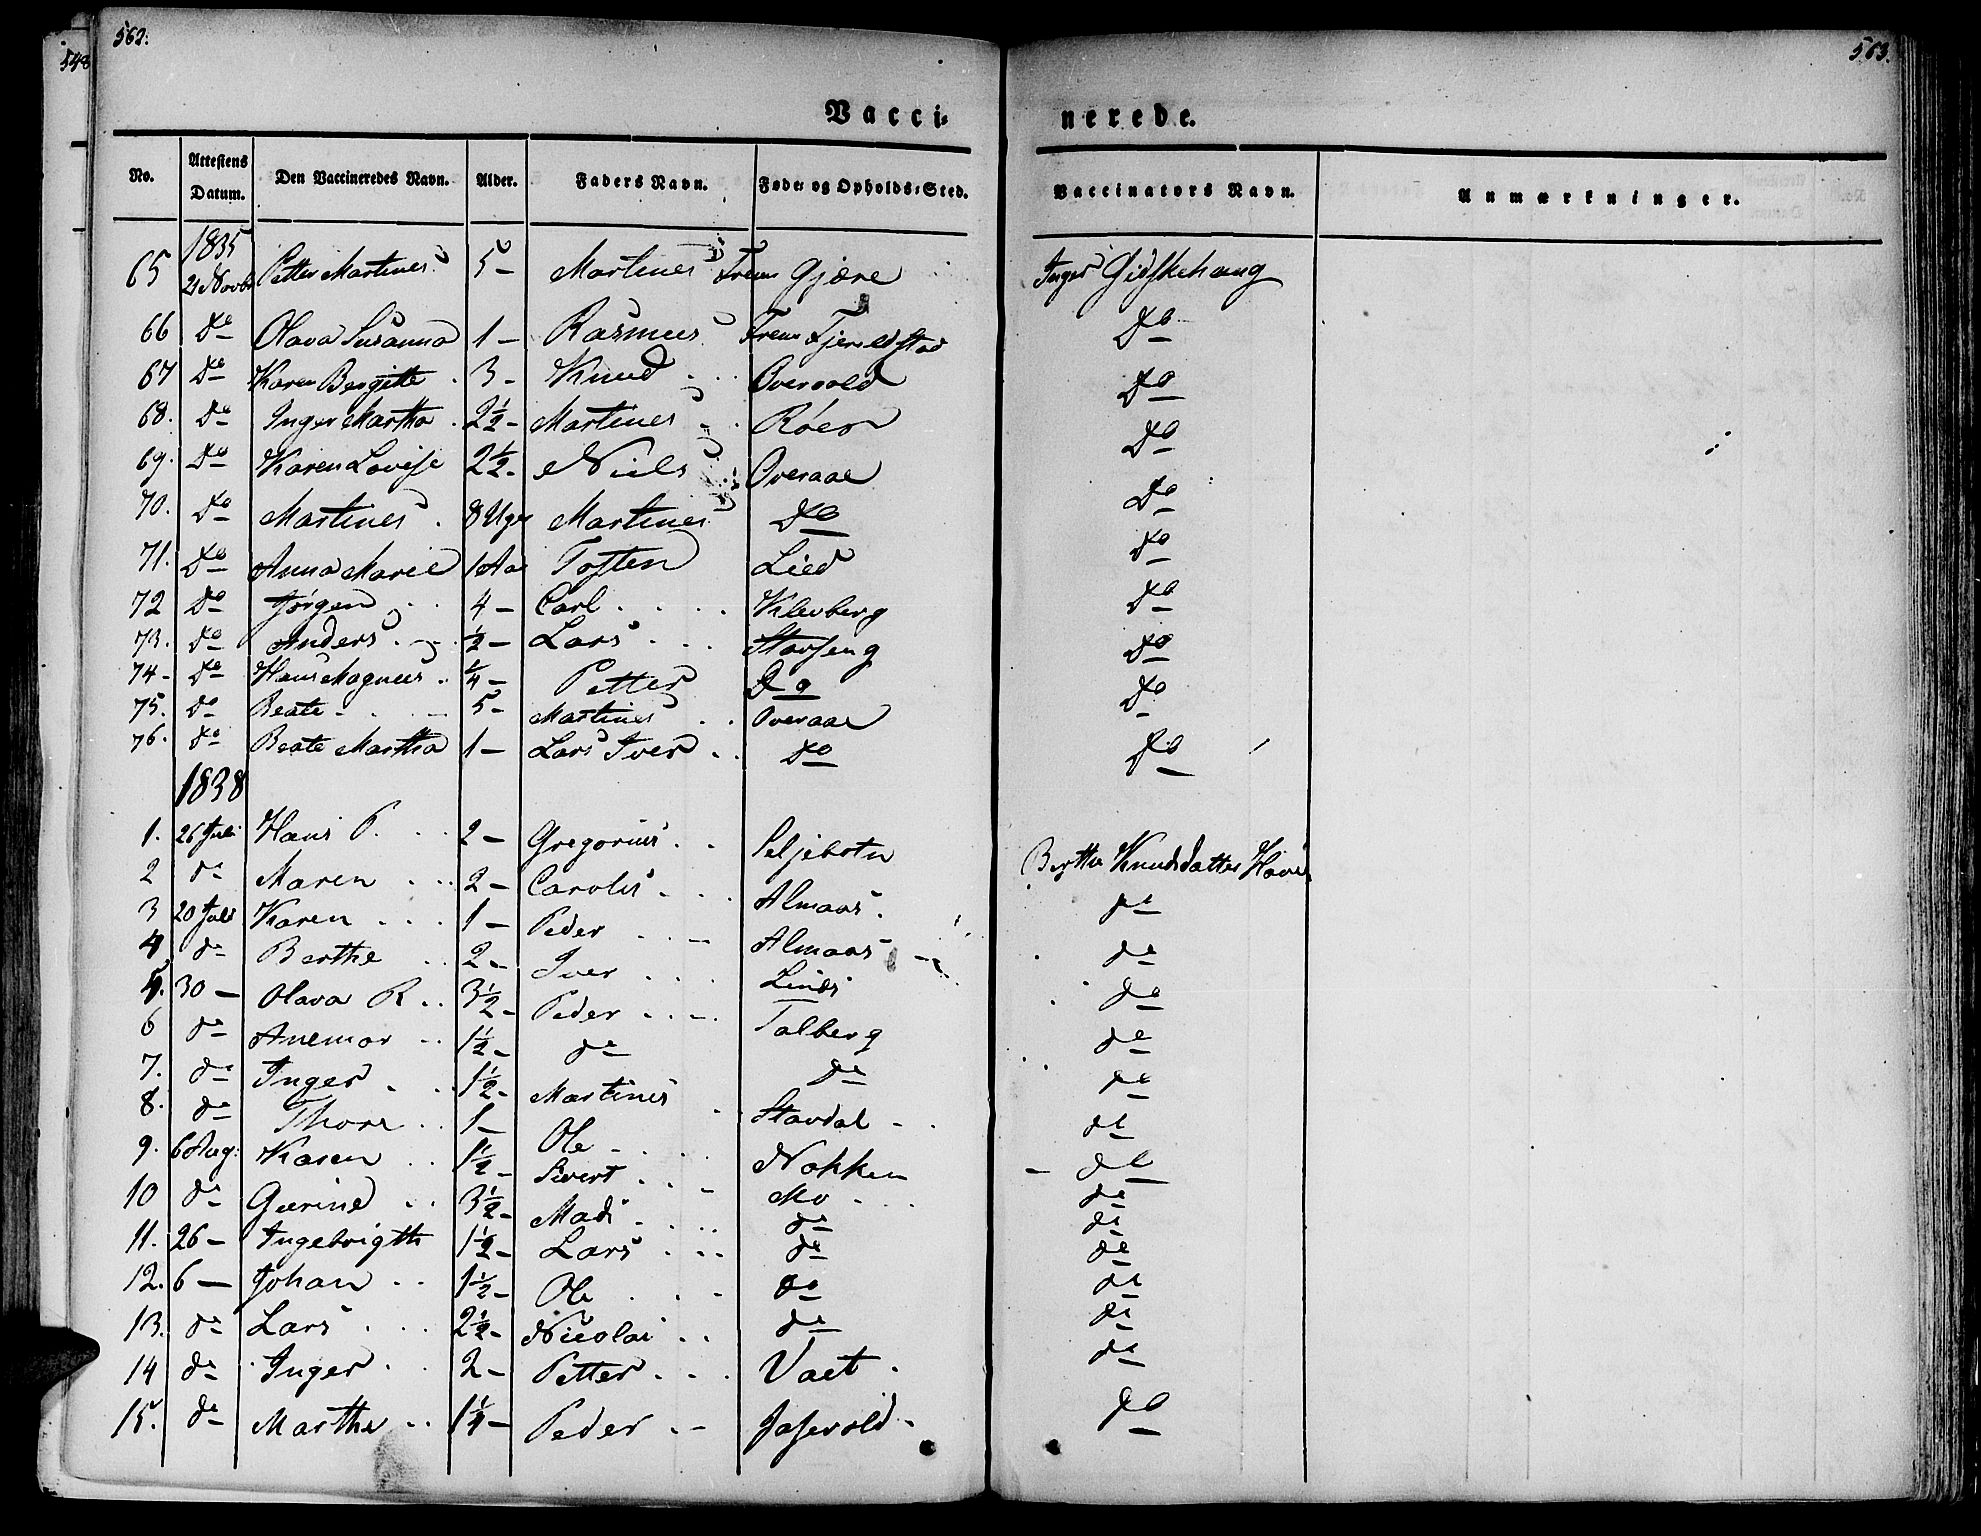 562.
563.
548
Vacci-
nerede.
No. Attestens Datum. Den Vaccineredes Navn. Alder. Faders Navn. Føde- og Opholds-Sted. Vaccinators Navn. Anmærkninger.
1835
65 21 Novbr Petter Martines 5 - Martines Frem Gjære Inger Gidskehaug
66 Do Olava Susanna 1 - Rasmus Frem Fjeldstad Do
67 Do Karen Bergitte . 3 - Knud Overvold Do
68. Do Inger Martha . 2½ - Martines Do
69. Do Karen Lovise 2½ - Niels Overaae Do
70. Do Martines . 8 Uger Martines Do Do
71. Do Anna Marie 1 Aar Tosten Lied Do
72 Do Jørgen . . 4 - Carl . . . . Klevberg Do
73. Do Anders . - . ½ - Lars . . . Stavseng Do
74 - Do Hans Magnus . ¼ - Petter Do Do
75. Do Beate - . . - 5 - Martines . . Overaae Do
76. Do Beate Martha 1 - Lars Iver . . Do Do
1838
1. 26 Juli Hans P. . . 2 - Gregorius . . Seljebotn Berthe Knudsdatter Hove
2 do Maren . . . 2 - Carolus . . . Almaas . do
3 20 Juli Karen . . . 1 - Peder . . - Almaas do
4 do Berthe . . 2 - Iver . . . . Linds do
5. 30 - Olava R . . 3½ - Peder . . - . Talberg do
6 do Anemar . . 1½ - do do do
7. do Inger . . . 1½ - Martines . Stavdal - . do
8. do Thore . . 1 - Ole - . . . Nakken do
9. 6 Aug: Karen . . 1½ - Sivert . . - Mo - . . do
10 do Gurine . . 3½ - Mads . . . . do do
11. 26 - Ingebrigth 1½ - Lars . . . do do
12. 6 - Johan . . 1½ - Ole . . . do do
13. do Lars . . . 2½ - Nicolai . . do do
14 do Inger . . 2 - Petter . . . Vaet . do
15. do Marthe . . 1¼ - Peder . - do